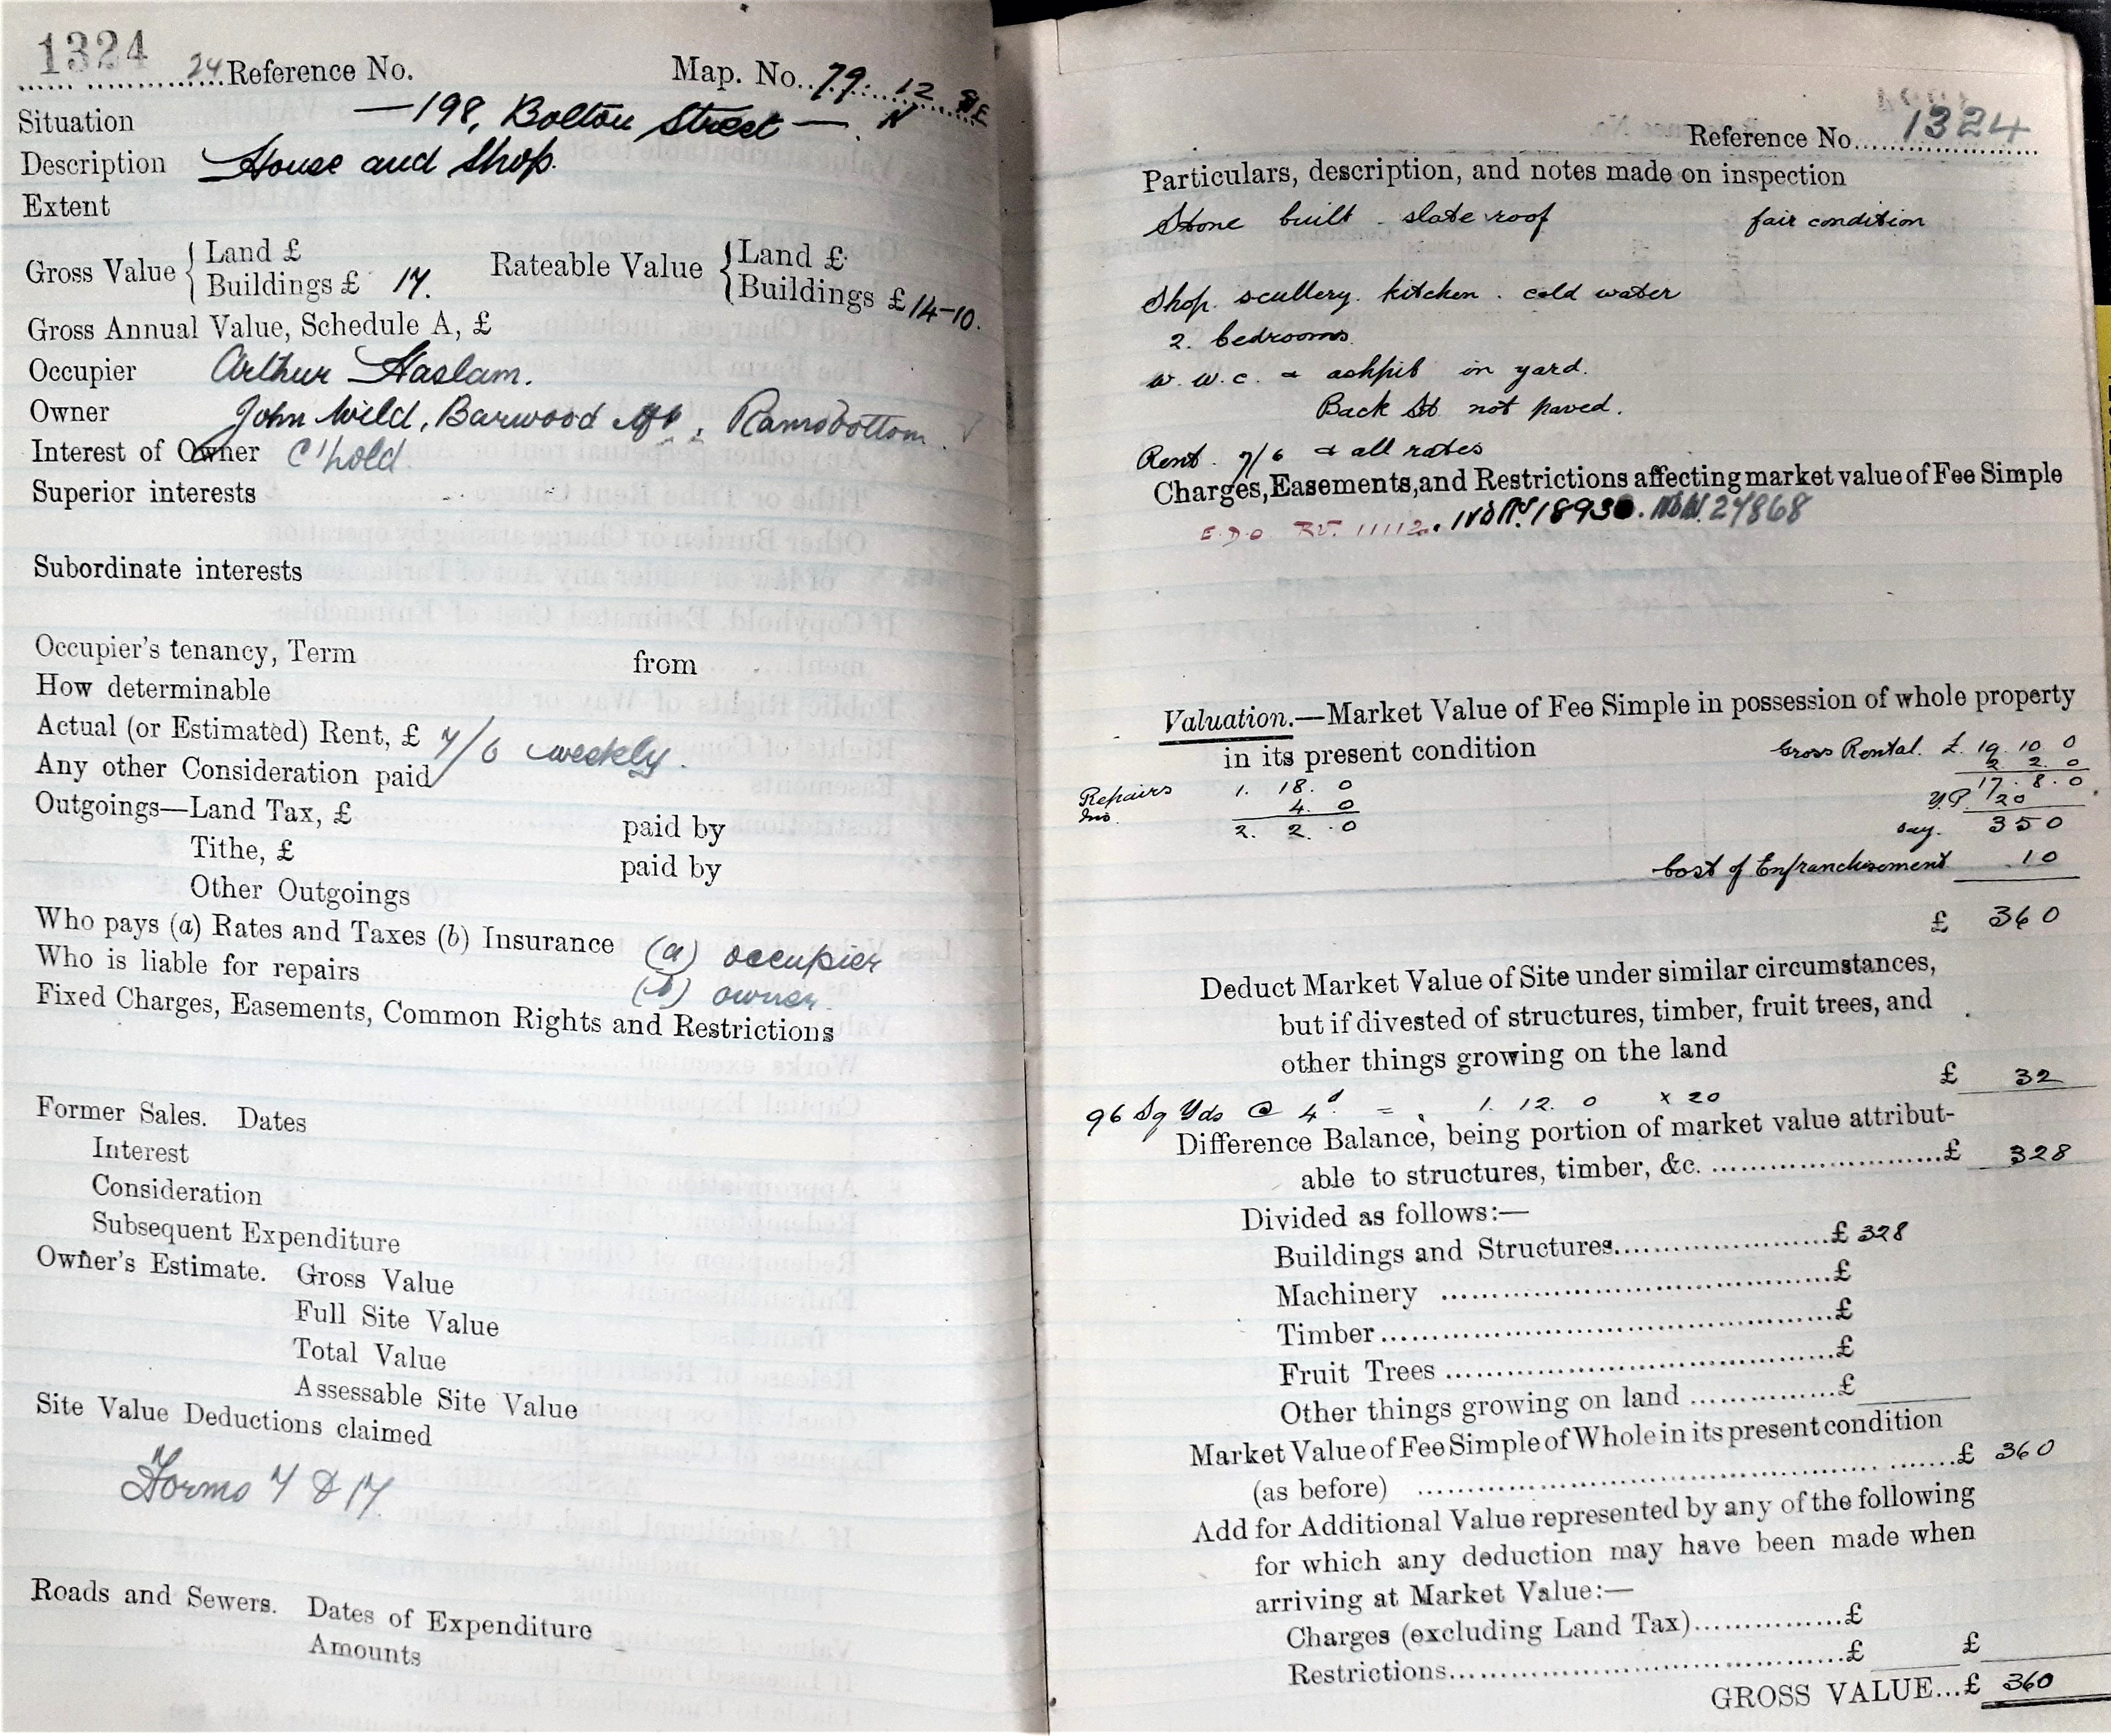 1324
24 Reference No. Map. No. 79. 12 NE
Situation —198, Bolton Street — N
Description House and Shop.
Extent
Gross Value { Land £ Rateable Value { Land £
Buildings £ 17. Buildings £14-10.
Gross Annual Value, Schedule A, £
Occupier Arthur Haslam.
Owner John Wild, Barwood , Ramsbottom.
Interest of Owner C'hold
Superior interests
Subordinate interests
Occupier's tenancy, Term from
How determinable
Actual (or Estimated) Rent, £ 7/6 weekly.
Any other Consideration paid
Outgoings—Land Tax, £ paid by
Tithe, £ paid by
Other Outgoings
Who pays (a) Rates and Taxes (b) Insurance (a) occupier
Who is liable for repairs (b) owner
Fixed Charges, Easements, Common Rights and Restrictions
Former Sales. Dates
Interest
Consideration
Subsequent Expenditure
Owner's Estimate. Gross Value
Full Site Value
Total Value
Assessable Site Value
Site Value Deductions claimed
Forms 7 & 17
Roads and Sewers. Dates of Expenditure
Amounts
Reference No. 1324
Particulars, description, and notes made on inspection
Stone built slate roof fair condition
Shop. scullery. kitchen. cold water
2. bedrooms.
W. W.C. & ashpit in yard.
Back St not paved.
Rent. 7/6 & all rates
Charges, Easements, and Restrictions affecting market value of Fee Simple
E.D.O 11112. 24868
Valuation.—Market Value of Fee Simple in possession of whole property
in its present condition Gross Rental. £. 19. 10 0
2. 2. 0
Repairs 1. 18. 0 17. 8. 0
Ins. 4. 0 Y.P. 20
2. 2. 0 say. 350
Cost of Enfranchisement 10
£ 360
Deduct Market Value of Site under similar circumstances,
but if divested of structures, timber, fruit trees, and
other things growing on the land
£ 32
96 Sq Yds @ 4d = 1. 12. 0 x 20
Difference Balance, being portion of market value attribut-
able to structures, timber, &c. £ 328
Divided as follows:—
Buildings and Structures £ 328
Machinery £
Timber £
Fruit Trees £
Other things growing on land £
Market Value of Fee Simple of Whole in its present condition
(as before) £ 360
Add for Additional Value represented by any of the following
for which any deduction may have been made when
arriving at Market Value:—
Charges (excluding Land Tax) £
Restrictions £ £
GROSS VALUE...£ 360